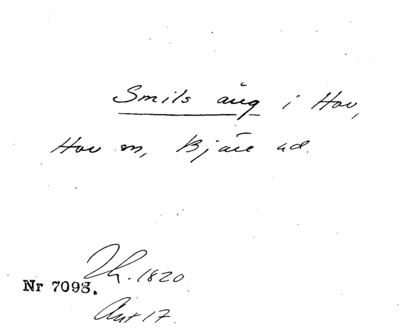 Smils äng i Hov,
Hov sn, Bjäre hd.
Lh. 1820
Nr 7093.
Avt 17.